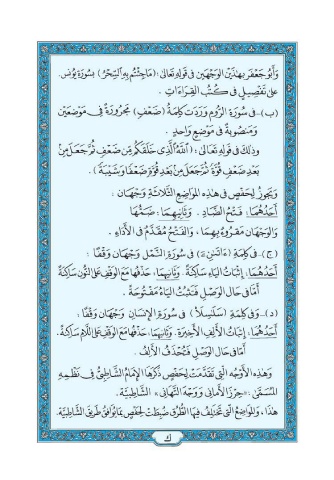 وَأَبُو جَعْفَرٍ بِهٰذَيْنِ الْوَجْهَيْنِ فِى قَوْلِهِ تَعَالَى: (مَا جِئْتُم بِهِ السِّحْرُ) بِسُورَةِ يُونُسَ
عَلَى تَفْصِيلٍ فِى كُتُبِ القِرَاءَاتِ .
(ب) - فِى سُورَةِ الرُّومِ وَرَدَتْ كَلِمَةُ (ضَعْفٍ) مَجْرُورَةً فِى مَوْضِعَيْنِ
وَمَنْصُوبَةً فِى مَوْضِعٍ وَاحِدٍ .
وَذٰلِكَ فِى قَوْلِهِ تَعَالَى: (ٱللَّهُ ٱلَّذِى خَلَقَكُم مِّن ضَعْفٍ ثُمَّ جَعَلَ مِنۢ
بَعْدِ ضَعْفٍ قُوَّةً ثُمَّ جَعَلَ مِنۢ بَعْدِ قُوَّةٍ ضَعْفًا وَشَيْبَةً) .
وَيَجُوزُ لِحَفْصٍ فِى هٰذِهِ المَوَاضِعِ الثَّلَاثَةِ وَجْهَانِ :
أَحَدُهُمَا : فَتْحُ الضَّادِ . وَثَانِيهِمَا : ضَمُّهَا
وَالوَجْهَانِ مَقْرُوءٌ بِهِمَا ، وَالفَتْحُ مُقَدَّمٌ فِى الأَدَاءِ .
(ج) - فِى كَلِمَةِ (ءَاتَىٰنِۦَ) فِى سُورَةِ النَّمْلِ وَجْهَانِ وَقْفًا :
أَحَدُهُمَا: إِثْبَاتُ اليَاءِ سَاكِنَةً . وَثَانِيهِمَا: حَذْفُهَا مَعَ الوَقْفِ عَلَى النُّونِ سَاكِنَةً
أَمَّا فِى حَالِ الوَصْلِ فَتَثْبُتُ اليَاءُ مَفْتُوحَةً .
(د) - وَفِى كَلِمَةِ (سَلَٰسِلَا۟) فِى سُورَةِ الإِنْسَانِ وَجْهَانِ وَقْفًا :
أَحَدُهُمَا: إِثْبَاتُ الأَلِفِ الأَخِيرَةِ. وَثَانِيهِمَا: حَذْفُهَا مَعَ الوَقْفِ عَلَى اللَّامِ سَاكِنَةً.
أَمَّا فِى حَالِ الوَصْلِ فَتُحْذَفُ الأَلِفُ .
وَهٰذِهِ الأَوْجُهُ الَّتِى تَقَدَّمَتْ لِحَفْصٍ ذَكَرَهَا الإِمَامُ الشَّاطِبِىُّ فِى نَظْمِهِ
المُسَمَّى: «حِرْزَ الأَمَانِى وَوَجْهَ التَّهَانِى» الشَّاطِبِيَّةَ .
هٰذَا، وَالمَوَاضِعُ الَّتِى تَخْتَلِفُ فِيهَا الطُّرُقُ ضُبِطَتْ لِحَفْصٍ بِمَا يُوَافِقُ طَرِيقَ الشَّاطِبِيَّةِ.
ك